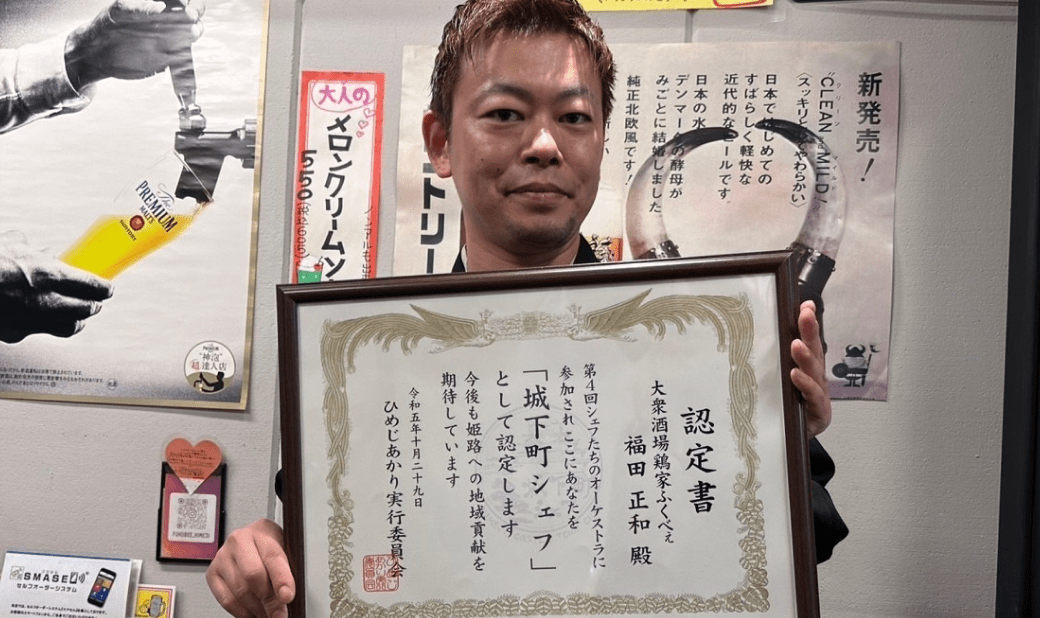 認定書
大衆酒場鶏家ふくべえ
福田 正和 殿
第4回シェフたちのオーケストラに
参加され ここにあなたを
「城下町シェフ」
として認定します
今後も姫路への地域貢献を
期待しています
令和五年十月二十九日
ひめじあかり実行委員会
新発売!
"CLEAN and MILD!
(スッキリとしてやわらかい)
日本ではじめての
すばらしく軽快な
近代的なビールです
日本の水
デンマークの酵母が
みごとに結婚しました
純正北欧風です!
トリー
大人の
メロンクリームソ
550
ノンアルも出
The
PREMIUM
MALT'S
SUNTORY
"神泡"
超達人店
SMASE
セルフオーダーシステム